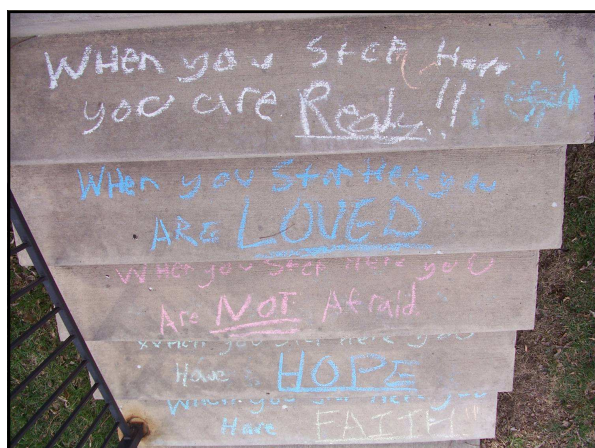 When you Step Here
you are Ready!!
When you Step Here you
ARE LOVED
When you Step Here you
Are NOT Afraid.
When you Step Here you
Have HOPE
When you Step Here you
Have FAITH